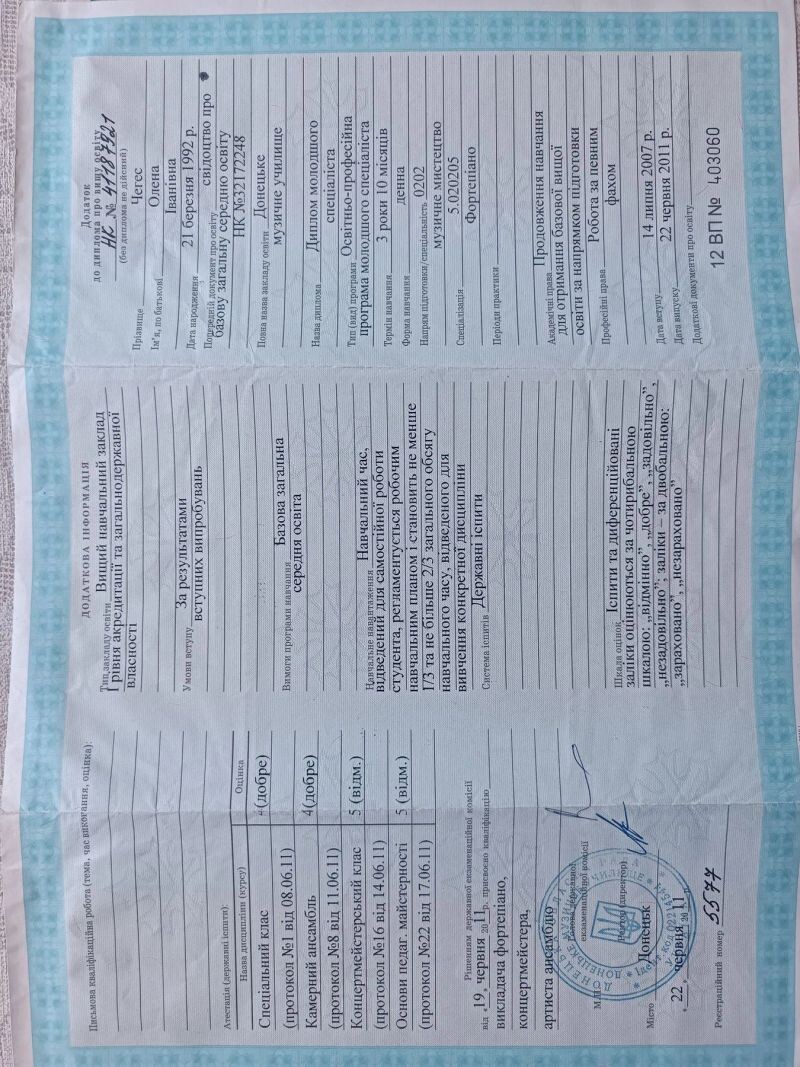 Додаток
до диплома про вищу освіту
НК № 41187821
(без диплома не дійсний)
Прізвище Чегес
Ім'я, по батькові Олена
Іванівна
Дата народження 21 березня 1992 р.
Попередній документ про освіту свідоцтво про
базову загальну середню освіту
НК №32172248
Повна назва закладу освіти Донецьке
музичне училище
Назва диплома Диплом молодшого
спеціаліста
Тип (вид) програми Освітньо-професійна
програма молодшого спеціаліста
Термін навчання 3 роки 10 місяців
Форма навчання денна
Напрям підготовки/спеціальність 0202
музичне мистецтво
5.020205
Спеціалізація Фортепіано
Періоди практики
Академічні права Продовження навчання
для отримання базової вищої
освіти за напрямком підготовки
Професійні права Робота за певним
фахом
Дата вступу 14 липня 2007 р.
Дата випуску 22 червня 2011 р.
Додаткові документи про освіту
12 ВП № 403060
ДОДАТКОВА ІНФОРМАЦІЯ
Тип закладу освіти Вищий навчальний заклад
I рівня акредитації та загальнодержавної
власності
Умови вступу За результатами
вступних випробувань
Вимоги програми навчання Базова загальна
середня освіта
Навчальне навантаження Навчальний час,
відведений для самостійної роботи
студента, регламентується робочим
навчальним планом і становить не менше
1/3 та не більше 2/3 загального обсягу
навчального часу, відведеного для
вивчення конкретної дисципліни
Система іспитів Державні іспити
Шкала оцінок Іспити та диференційовані
заліки оцінюються за чотирибальною
шкалою: „відмінно”, „добре”, „задовільно”,
„незадовільно”; заліки – за двобальною:
„зараховано”, „незараховано”
Письмова кваліфікаційна робота (тема, час виконання, оцінка):
Атестація (державні іспити):
Назва дисципліни (курсу) Оцінка
Спеціальний клас 4(добре)
(протокол №1 від 08.06.11)
Камерний ансамбль 4(добре)
(протокол №8 від 11.06.11)
Концертмейстерський клас 5 (відм.)
(протокол №16 від 14.06.11)
Основи педаг. майстерності 5 (відм.)
(протокол №22 від 17.06.11)
Рішенням державної екзаменаційної комісії
від „19„ червня 2011р. присвоєно кваліфікацію
викладача фортепіано,
концертмейстера,
артиста ансамблю
Голова державної
екзаменаційної комісії
Ректор (директор)
М.П.
Місто Донецьк
„22„ червня 2011р.
Реєстраційний номер 5577